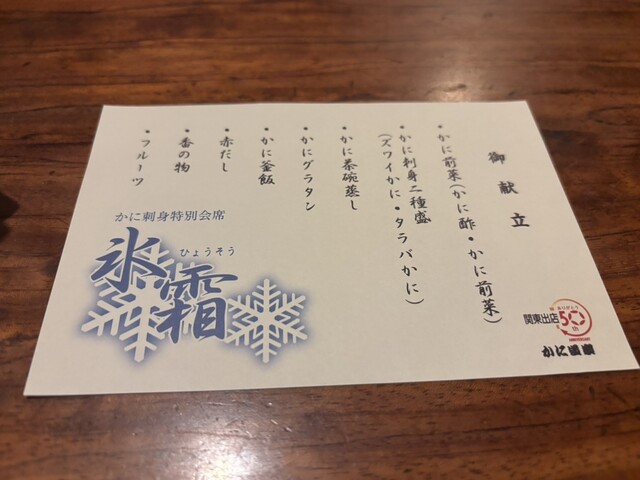 御献立
・かに前菜(かに酢・かに前菜)
・かに刺身二種盛
(ズワイかに・タラバかに)
・かに茶碗蒸し
・かにグラタン
・かに釜飯
・赤だし
・香の物
・フルーツ
かに刺身特別会席
ひょうそう
氷霜
ありがとう
関東出店
50th
ANNIVERSARY